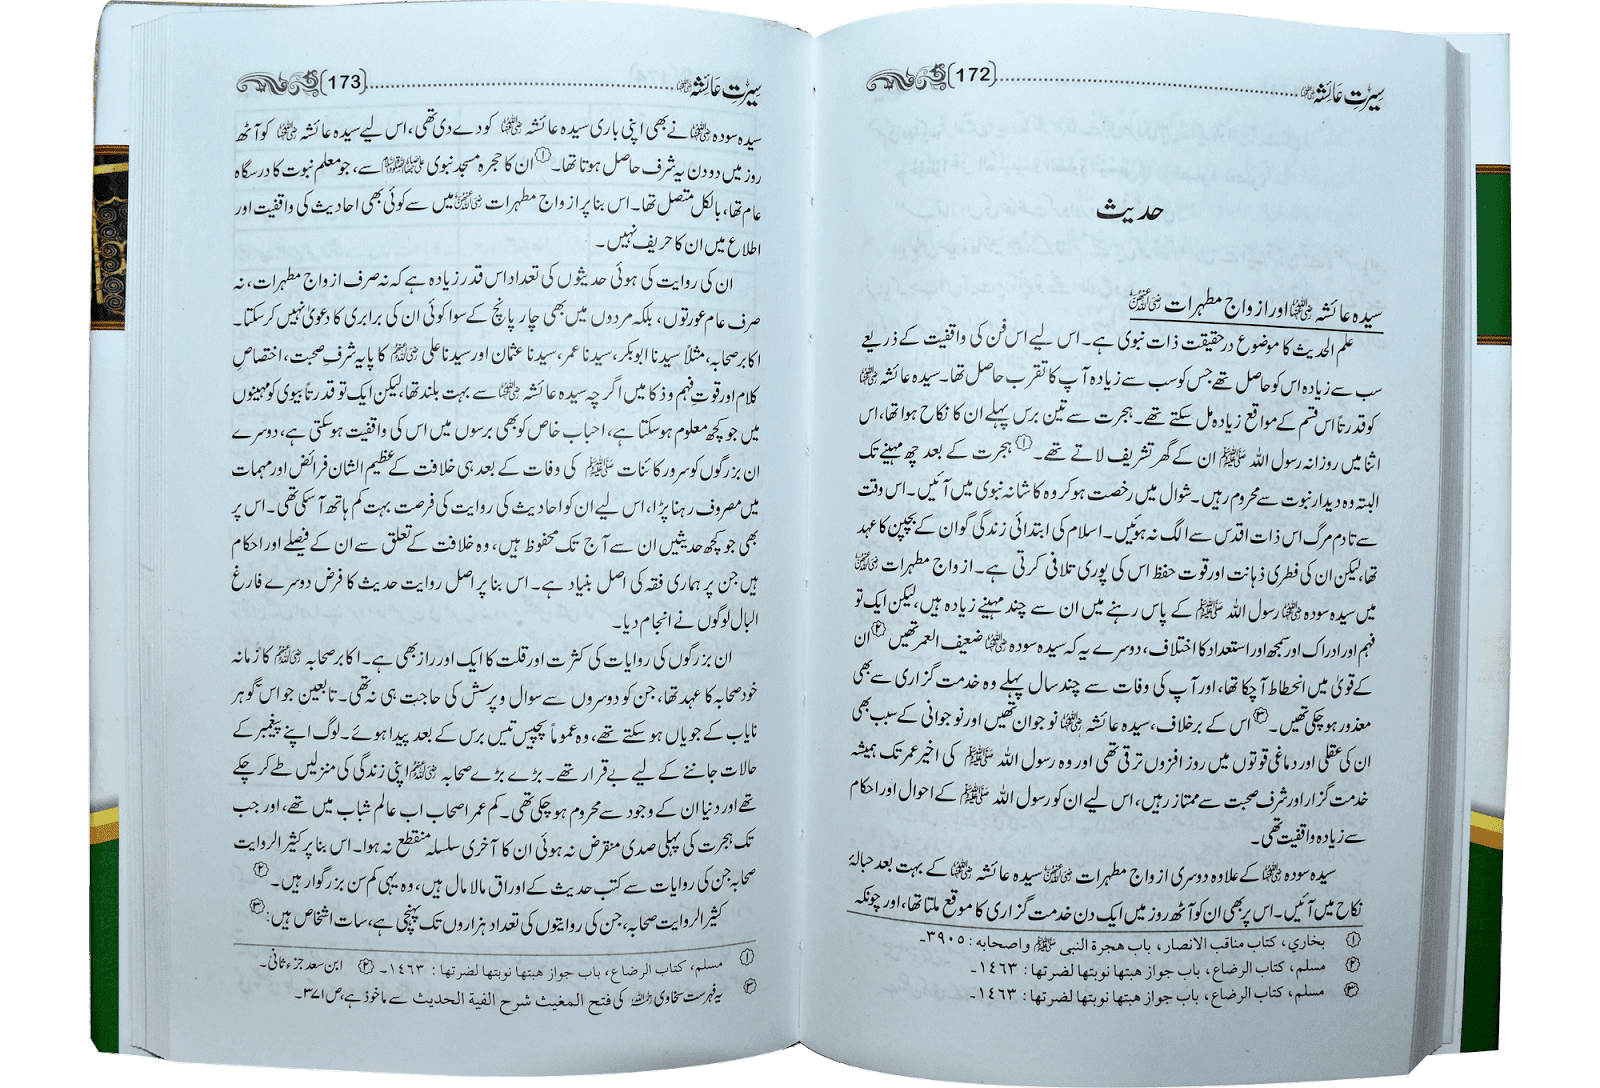 سیرتِ عائشہ ﷞ (172)
حدیث
سیدہ عائشہ ﷞ اور ازواج مطہرات ﷢
علم الحدیث کا موضوع درحقیقت ذات نبوی ہے۔ اس لیے اس فن کی واقفیت کے ذریعے
سب سے زیادہ اس کو حاصل تھے جس کو سب سے زیادہ آپ کا تقرب حاصل تھا۔ سیدہ عائشہ ﷞
کو قدرتاً اس قسم کے مواقع زیادہ مل سکتے تھے۔ ہجرت سے تین برس پہلے ان کا نکاح ہوا تھا، اس
اثنا میں روزانہ رسول اللہ ﷺ ان کے گھر تشریف لاتے تھے۔ ① ہجرت کے بعد چھ مہینے تک
البتہ وہ دیدار نبوت سے محروم رہیں۔ شوال میں رخصت ہو کر وہ کاشانہ نبوی میں آئیں۔ اس وقت
سے تادم مرگ اس ذات اقدس سے الگ نہ ہوئیں۔ اسلام کی ابتدائی زندگی گو ان کے بچپن کا عہد
تھا، لیکن ان کی فطری ذہانت اور قوت حفظ اس کی پوری تلافی کرتی ہے۔ ازواج مطہرات ﷢
میں سیدہ سودہ ﷞ رسول اللہ ﷺ کے پاس رہنے میں ان سے چند مہینے زیادہ ہیں، لیکن ایک تو
فہم اور ادراک اور سمجھ اور استعداد کا اختلاف، دوسرے یہ کہ سیدہ سودہ ﷞ ضعیف العمر تھیں ② ان
کے قویٰ میں انحطاط آ چکا تھا، اور آپ کی وفات سے چند سال پہلے وہ خدمت گزاری سے بھی
معذور ہو چکی تھیں۔ ③ اس کے برخلاف، سیدہ عائشہ ﷞ نوجوان تھیں اور نوجوانی کے سبب بھی
ان کی عقلی اور دماغی قوتوں میں روز افزوں ترقی تھی اور وہ رسول اللہ ﷺ کی اخیر عمر تک ہمیشہ
خدمت گزار اور شرف صحبت سے ممتاز رہیں، اس لیے ان کو رسول اللہ ﷺ کے احوال اور احکام
سے زیادہ واقفیت تھی۔
سیدہ سودہ ﷞ کے علاوہ دوسری ازواج مطہرات ﷢ سیدہ عائشہ ﷞ کے بہت بعد حبالۂ
نکاح میں آئیں۔ اس پر بھی ان کو آٹھ روز میں ایک دن خدمت گزاری کا موقع ملتا تھا، اور چونکہ
① بخاري، کتاب مناقب الانصار، باب هجرة النبی ﷺ واصحابه: ۳۹۰۵۔
② مسلم، کتاب الرضاع، باب جواز هبتها نوبتها لضرتها: ۱۴۶۳۔
③ مسلم، کتاب الرضاع، باب جواز هبتها نوبتها لضرتها: ۱۴۶۳۔
سیرتِ عائشہ ﷞ (173)
سیدہ سودہ ﷞ نے بھی اپنی باری سیدہ عائشہ ﷞ کو دے دی تھی، اس لیے سیدہ عائشہ ﷞ کو آٹھ
روز میں دو دن یہ شرف حاصل ہوتا تھا۔ ① ان کا حجرہ مسجد نبوی ﷺ سے، جو معلم نبوت کا درسگاہ
عام تھا، بالکل متصل تھا۔ اس بنا پر ازواج مطہرات ﷢ میں سے کوئی بھی احادیث کی واقفیت اور
اطلاع میں ان کا حریف نہیں۔
ان کی روایت کی ہوئی حدیثوں کی تعداد اس قدر زیادہ ہے کہ نہ صرف ازواج مطہرات، نہ
صرف عام عورتوں، بلکہ مردوں میں بھی چار پانچ کے سوا کوئی ان کی برابری کا دعویٰ نہیں کر سکتا۔
اکابر صحابہ، مثلاً سیدنا ابوبکر، سیدنا عمر، سیدنا عثمان اور سیدنا علی ﷡ کا پایہ شرفِ صحبت، اختصاصِ
کلام اور قوتِ فہم و ذکا میں اگرچہ سیدہ عائشہ ﷞ سے بہت بلند تھا، لیکن ایک تو قدرتاً بیوی کو مہینوں
میں جو کچھ معلوم ہو سکتا ہے، احباب خاص کو بھی برسوں میں اس کی واقفیت ہو سکتی ہے، دوسرے
ان بزرگوں کو سرور کائنات ﷺ کی وفات کے بعد ہی خلافت کے عظیم الشان فرائض اور مہمات
میں مصروف رہنا پڑا، اس لیے ان کو احادیث کی روایت کی فرصت بہت کم ہاتھ آ سکی تھی۔ اس پر
بھی جو کچھ حدیثیں ان سے آج تک محفوظ ہیں، وہ خلافت کے تعلق سے ان کے فیصلے اور احکام
ہیں جن پر ہماری فقہ کی اصل بنیاد ہے۔ اس بنا پر اصل روایت حدیث کا فرض دوسرے فارغ
البال لوگوں نے انجام دیا۔
ان بزرگوں کی روایات کی کثرت اور قلت کا ایک اور راز بھی ہے۔ اکابر صحابہ ﷡ کا زمانہ
خود صحابہ کا عہد تھا، جن کو دوسروں سے سوال و پرسش کی حاجت ہی نہ تھی۔ تابعین جو اس گوہر
نایاب کے جویاں ہو سکتے تھے، وہ عموماً پچیس تیس برس کے بعد پیدا ہوئے۔ لوگ اپنے پیغمبر کے
حالات جاننے کے لیے بے قرار تھے۔ بڑے بڑے صحابہ ﷡ اپنی زندگی کی منزلیں طے کر چکے
تھے اور دنیا ان کے وجود سے محروم ہو چکی تھی۔ کم عمر اصحاب اب عالم شباب میں تھے، اور جب
تک ہجرت کی پہلی صدی منقرض نہ ہوئی ان کا آخری سلسلہ منقطع نہ ہوا۔ اس بنا پر کثیر الروایت
صحابہ جن کی روایات سے کتب حدیث کے اوراق مالا مال ہیں، وہ یہی کم سن بزرگوار ہیں۔ ②
کثیر الروایت صحابہ، جن کی روایتوں کی تعداد ہزاروں تک پہنچی ہے، سات اشخاص ہیں: ③
① مسلم، کتاب الرضاع، باب جواز هبتها نوبتها لضرتها: ۱۴۶۳۔ ② ابن سعد جزء ثانی۔
③ یہ فہرست سخاوی ﷫ کی فتح المغیث شرح الفیة الحدیث سے ماخوذ ہے، ص ۳۷۱۔